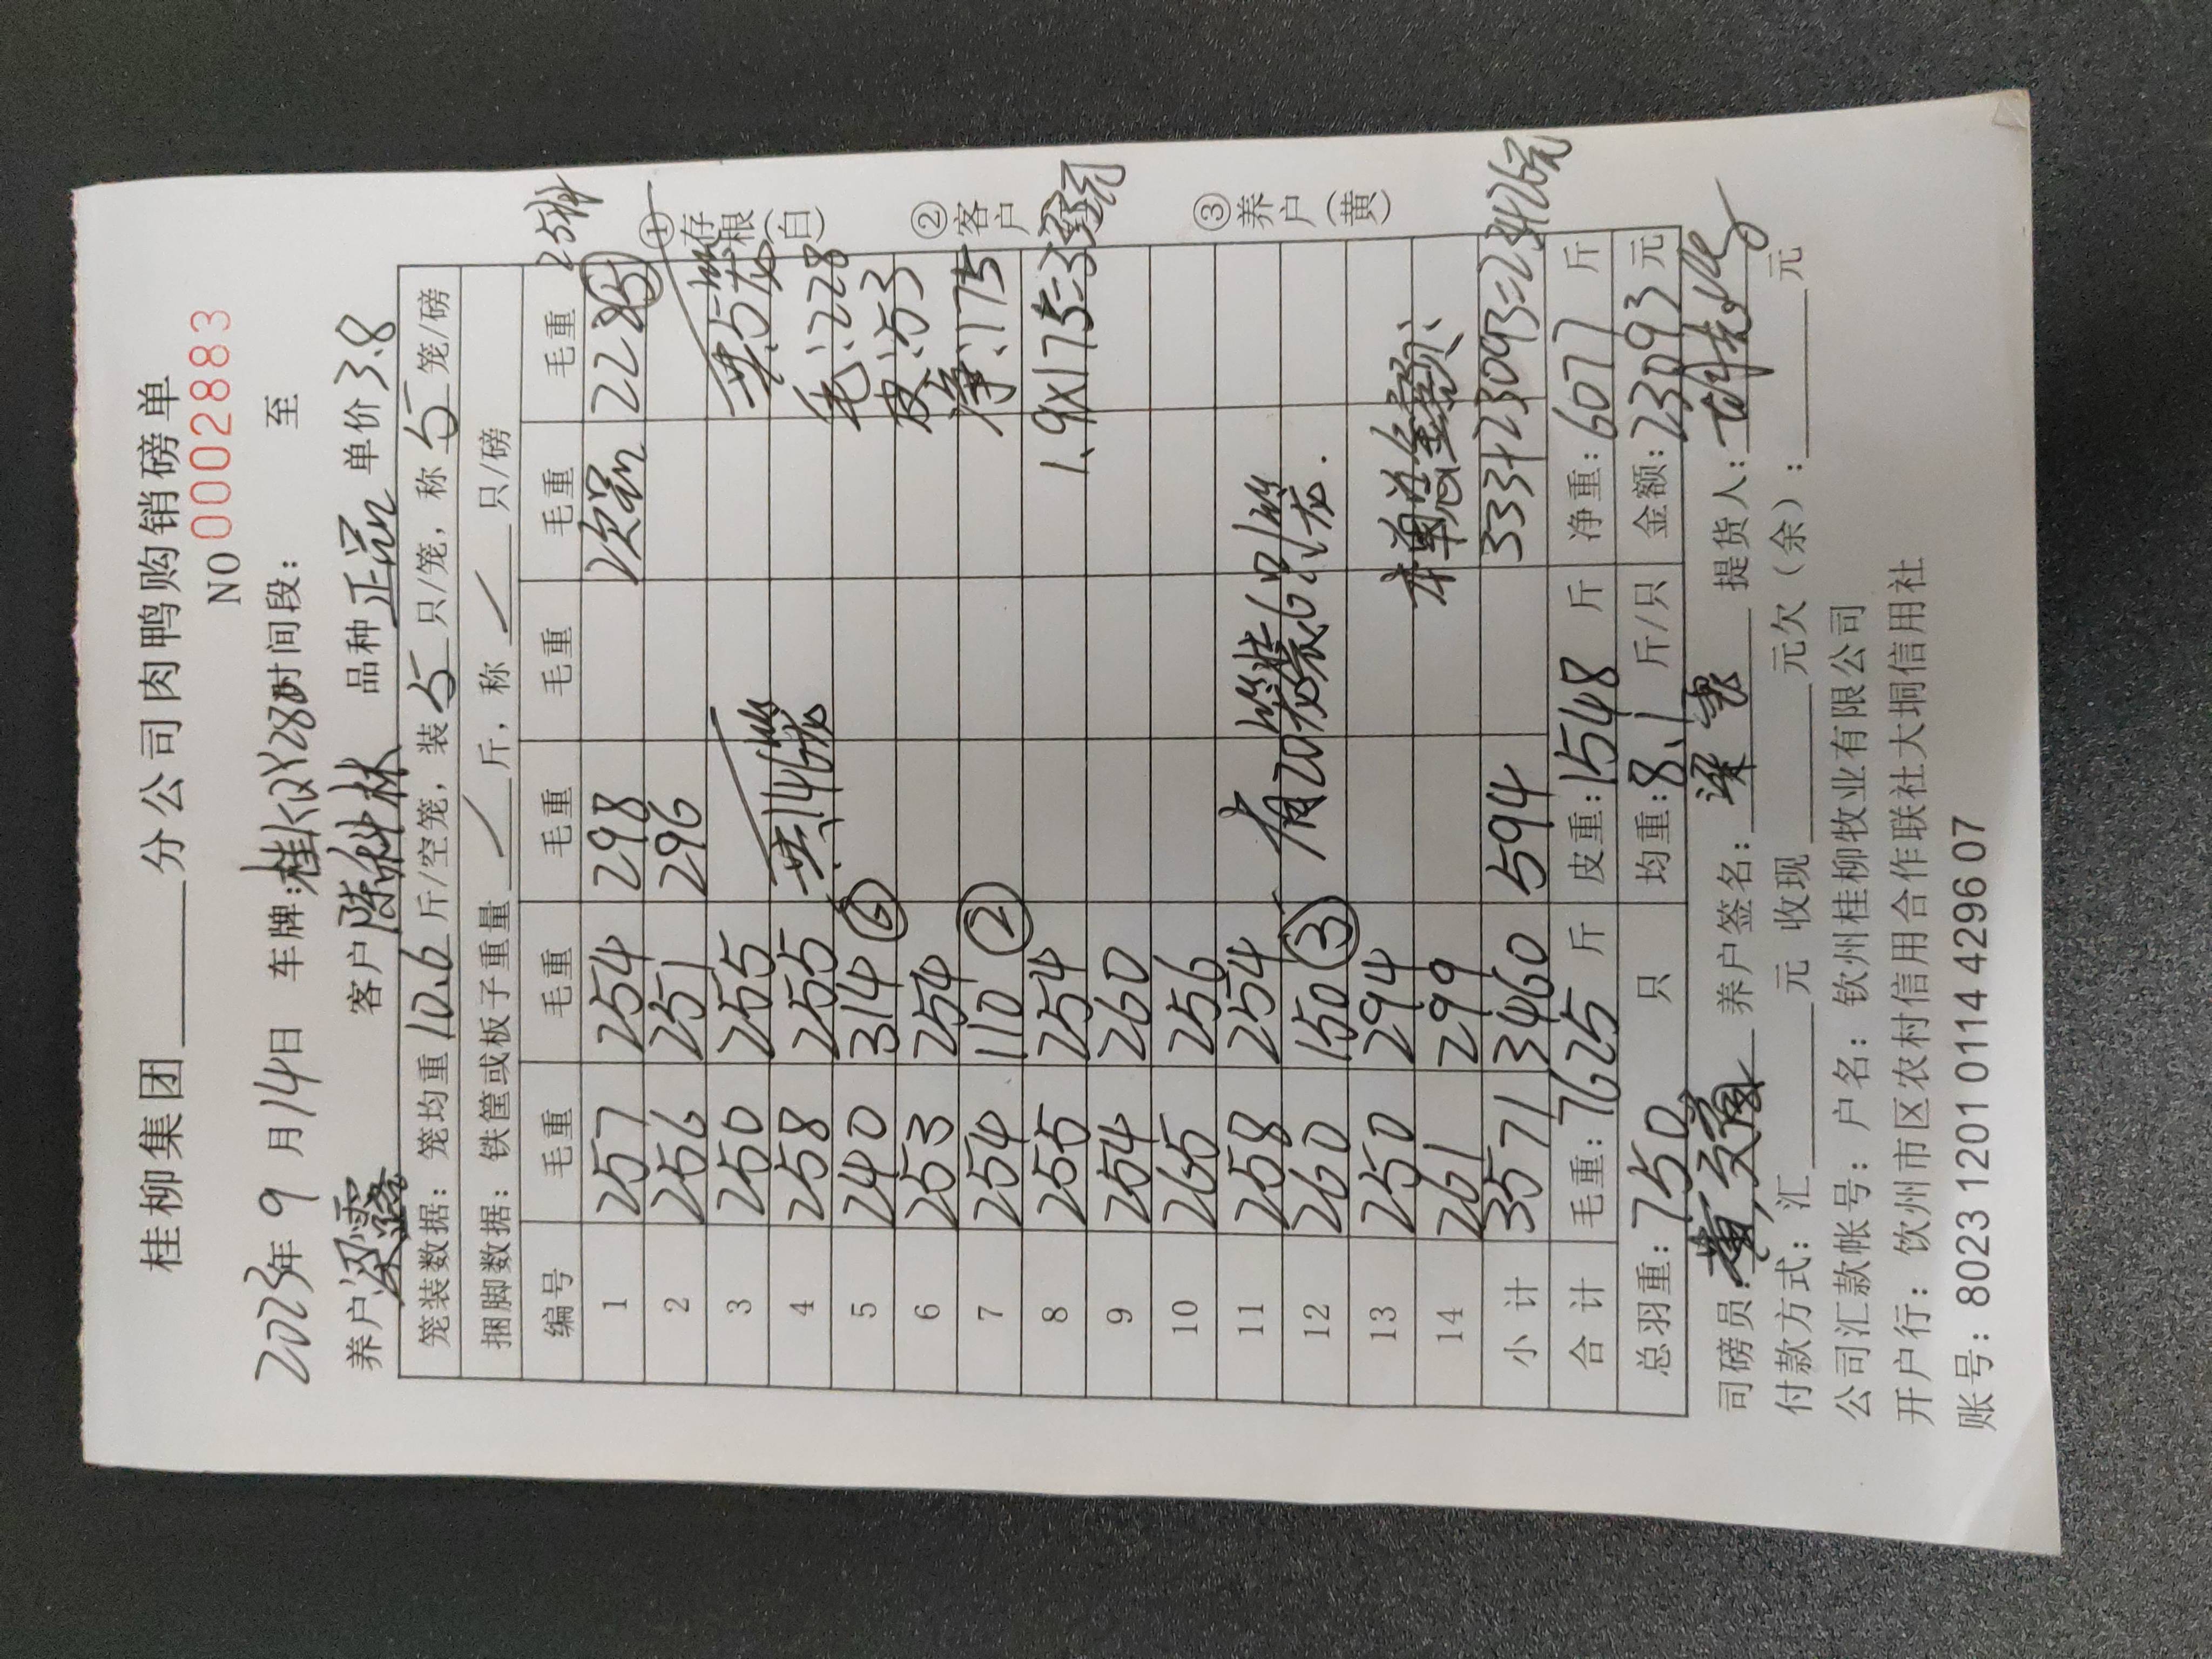 桂柳集团 分公司肉鸭购销磅单
NO 0002883
2023年 9 月 14日 车牌:桂 时间段: 至
养户 梁露 客户 陈科林 品种 正品 单价 3.8
笼装数据: 笼均重 10.6 斤/空笼, 装 5 只/笼, 称 5 笼/磅
捆脚数据: 铁筐或板子重量 / 斤, 称 / 只/磅
编号 毛重 毛重 毛重 毛重 毛重 毛重
1 257 254 298 次品 228 ⑤ 25只
2 256 251 296
3 250 255 共5笼
4 258 255 共146笼 毛:228
5 240 314 ⑥ 皮:53
6 253 254 净:175
7 254 110 ②
8 255 254 1.9x175=333元
9 254 260
10 265 256
11 258 254
12 260 150 ③ 有20笼装6只/笼.
13 250 294
14 261 299 本单总金额:
小计 3571 3460 594 333+23093=23426元
合计 毛重: 7625 斤 皮重: 1548 斤 净重: 6077 斤
总羽重: 750 只 均重: 8.1 斤/只 金额: 23093 元
司磅员: 养户签名: 梁露 提货人:
付款方式: 汇 元 收现 元欠(余): 元
公司汇款帐号: 户名: 钦州桂柳牧业有限公司
开户行: 饮州市区农村信用合作联社大垌信用社
账号: 8023 1201 0114 4296 07
①存根(白)
②客户
③养户(黄)